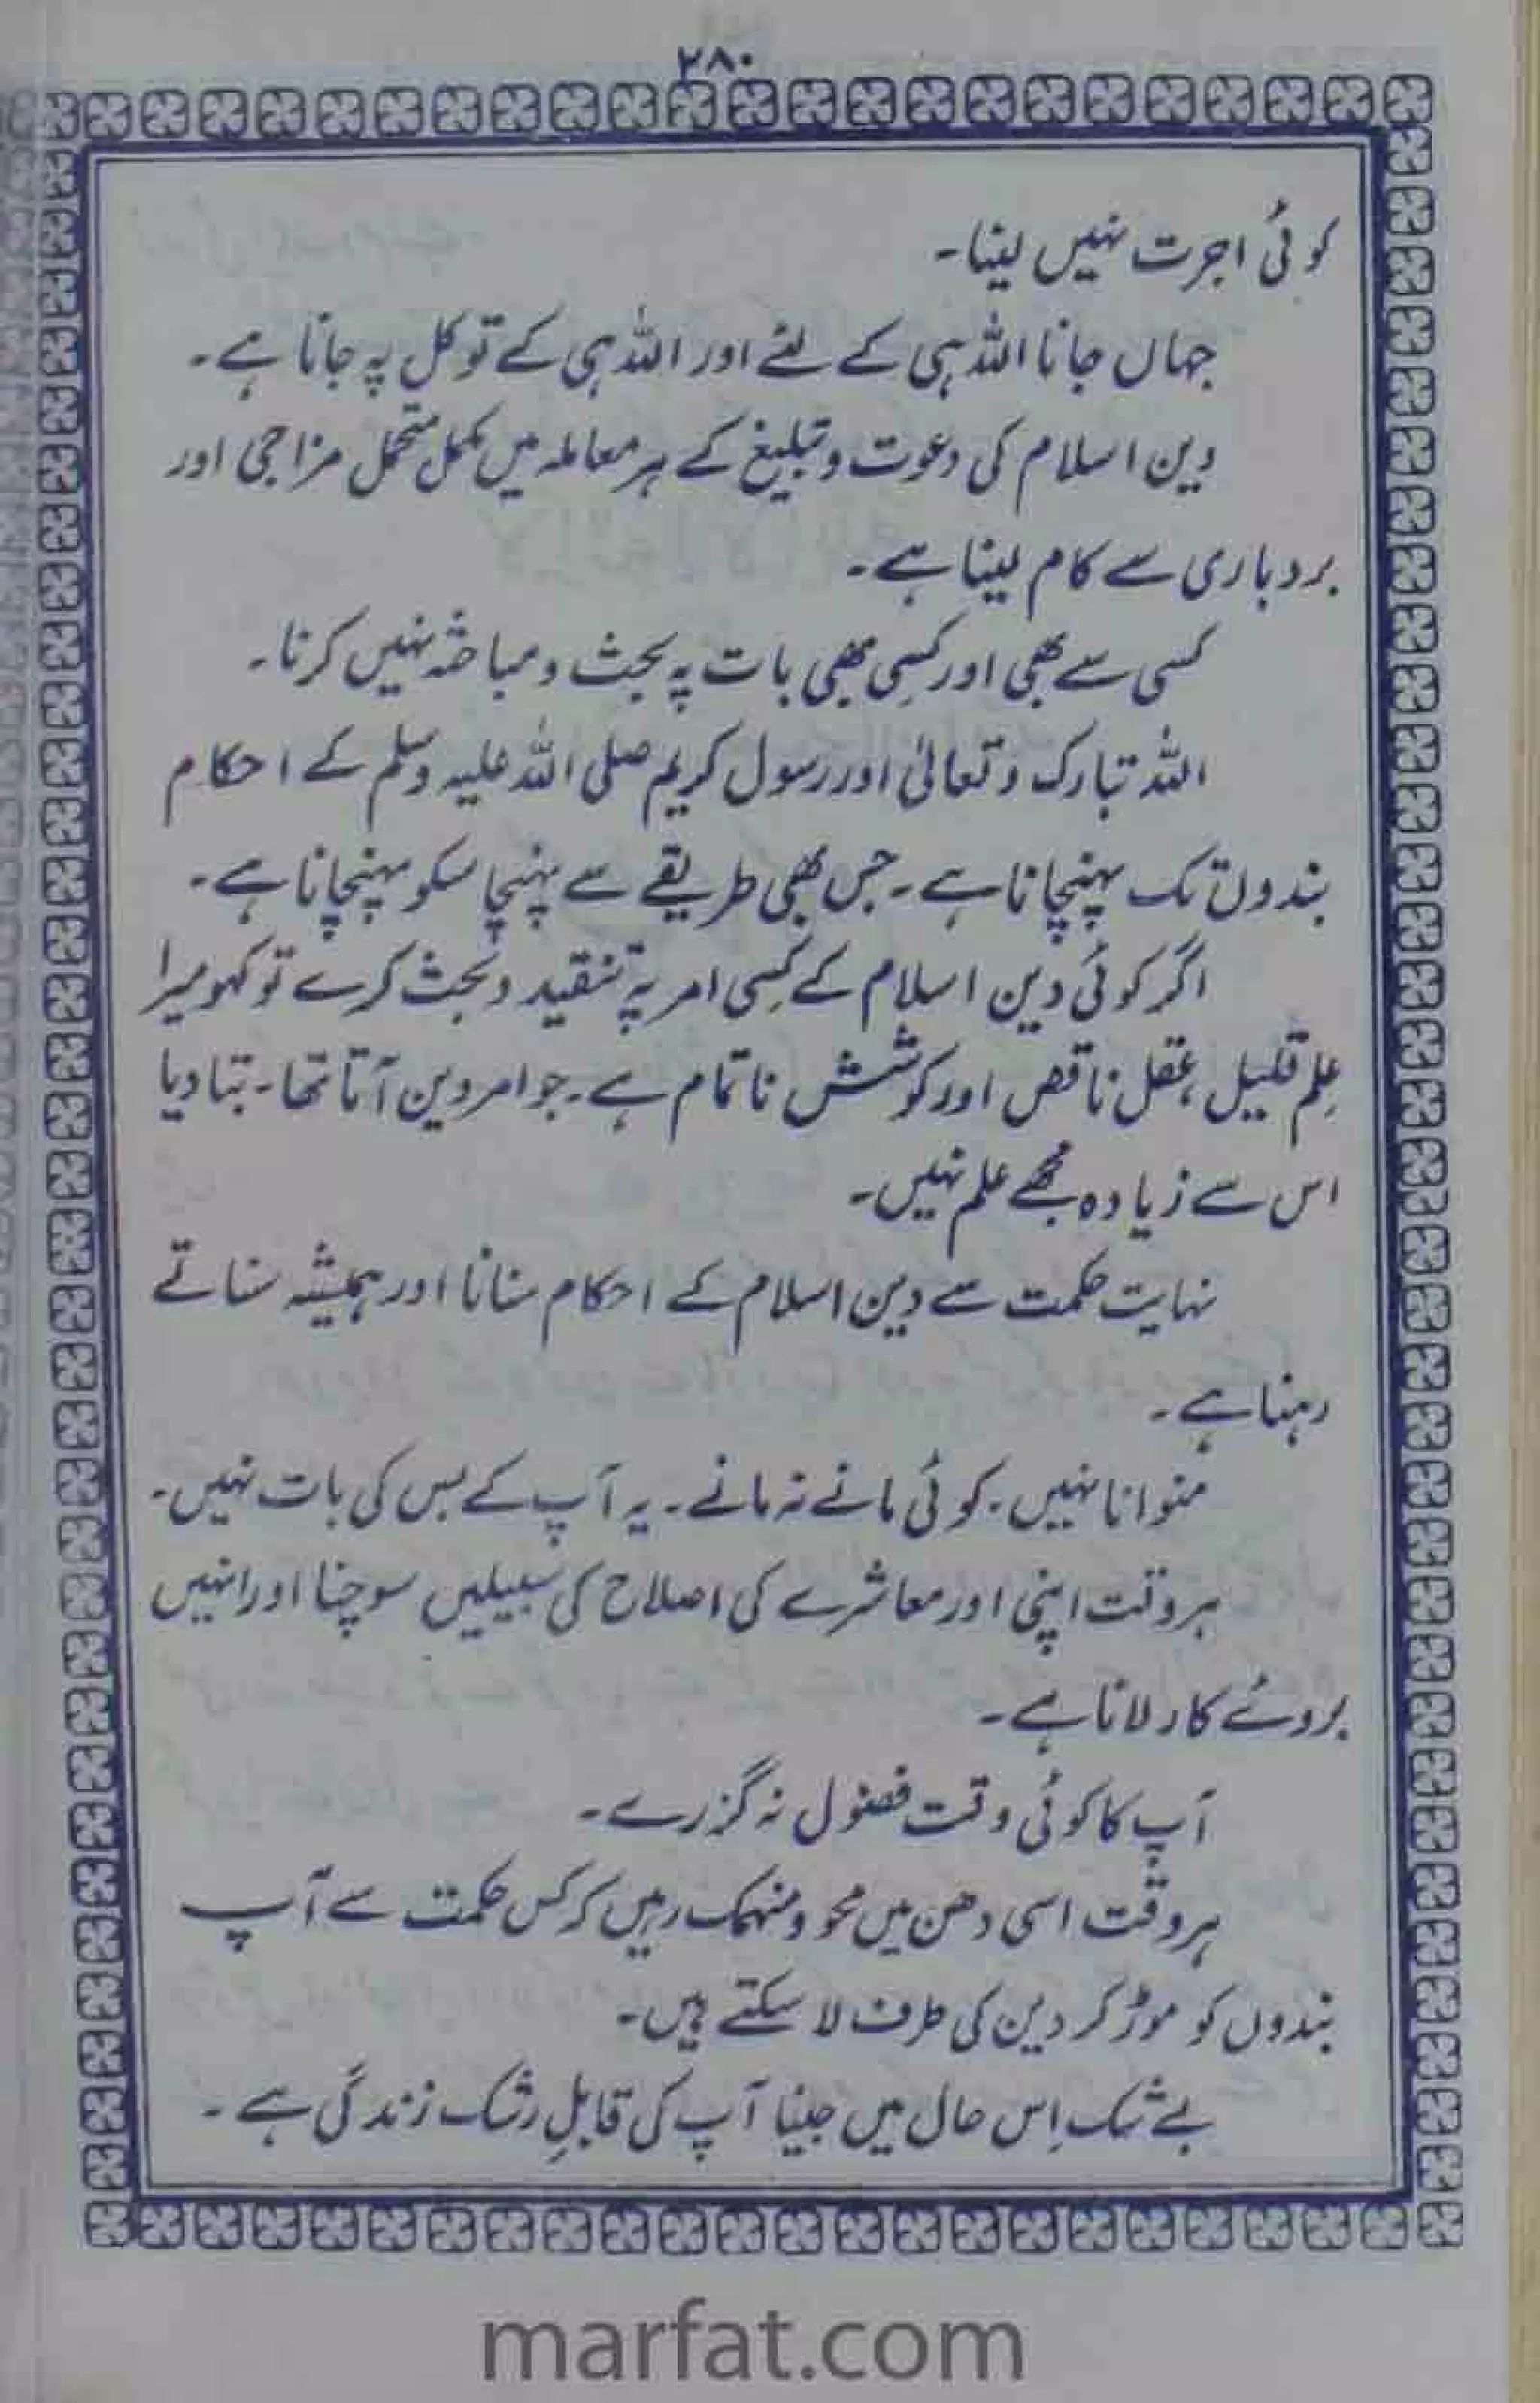 ۲۸۰
کوئی اجرت نہیں لینا۔
جہاں جانا اللہ ہی کے لئے اور اللہ ہی کے توکل پہ جانا ہے۔
دین اسلام کی دعوت و تبلیغ کے ہر معاملہ میں مکمل متحمل مزاجی اور
بردباری سے کام لینا ہے۔
کسی سے بھی اور کسی بھی بات پہ بحث و مباحثہ نہیں کرنا۔
اللہ تبارک و تعالیٰ اور رسول کریم صلی اللہ علیہ وسلم کے احکام
بندوں تک پہنچانا ہے۔ جس بھی طریقے سے پہنچا سکو پہنچانا ہے۔
اگر کوئی دین اسلام کے کسی امر پہ تنقید و بحث کرے تو کہو میرا
عِلم قلیل، عقل ناقص اور کوشش ناتمام ہے۔ جو امر دین آتا تھا۔ بتا دیا
اس سے زیادہ مجھے علم نہیں۔
نہایت حکمت سے دین اسلام کے احکام سنانا اور ہمیشہ سناتے
رہنا ہے۔
منوانا نہیں۔ کوئی مانے نہ مانے۔ یہ آپ کے بس کی بات نہیں۔
ہر وقت اپنی اور معاشرے کی اصلاح کی سبیلیں سوچنا اور انہیں
بروئے کار لانا ہے۔
آپ کا کوئی وقت فضول نہ گزرے۔
ہر وقت اسی دھن میں محو و منہمک رہیں کہ کس حکمت سے آپ
بندوں کو موڑ کر دین کی طرف لا سکتے ہیں۔
بے شک اِس حال میں جینا آپ کی قابلِ رشک زندگی ہے۔
marfat.com